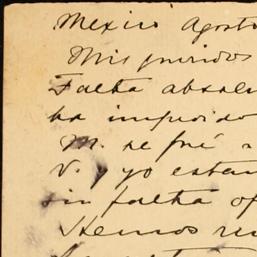 Mexico Agosto
Mis queridos
Falta absolu
ha impedido
M. se fué a
V. y yo estam
sin falta
Hemos